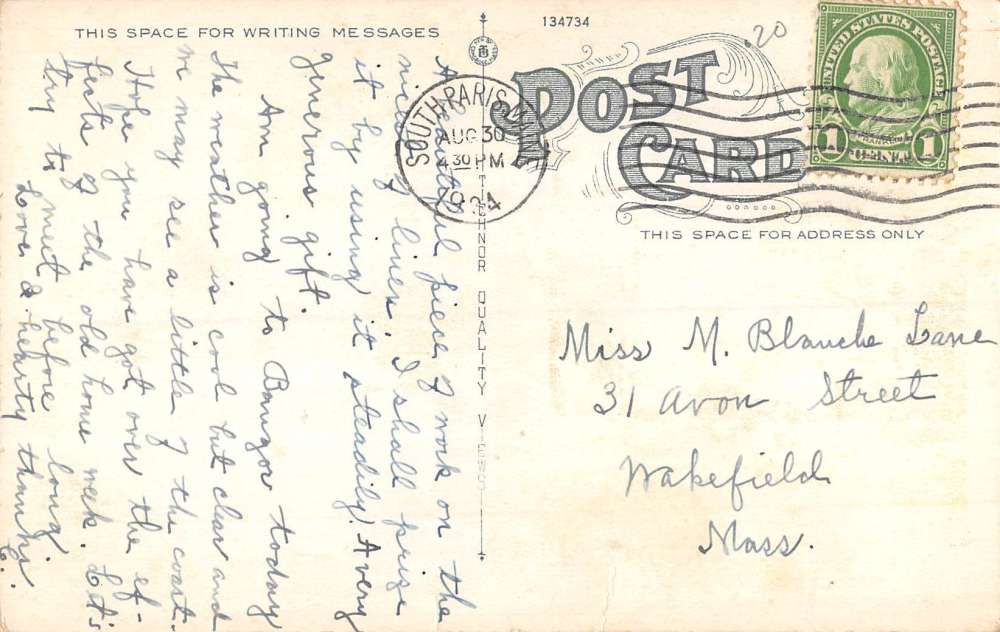 THIS SPACE FOR WRITING MESSAGES
A beautiful piece of work on the
nicest of linen. I shall prize
it by using it steadily. A very
generous gift.
Am going to Bangor today
The weather is cool but clear and
we may see a little of the coast.
Hope you have got over the ef-
fects of the old home week. Let's
try to meet before long.
Love & hearty thanks.
C.
134734
20
POST
CARD
SOUTH PARIS, MAINE
AUG 30
4 30 PM
UNITED STATES POSTAGE
FRANKLIN
1 CENT 1
TECHNOR QUALITY VIEWS
THIS SPACE FOR ADDRESS ONLY
Miss M. Blanche Lane
31 Avon Street
Wakefield
Mass.